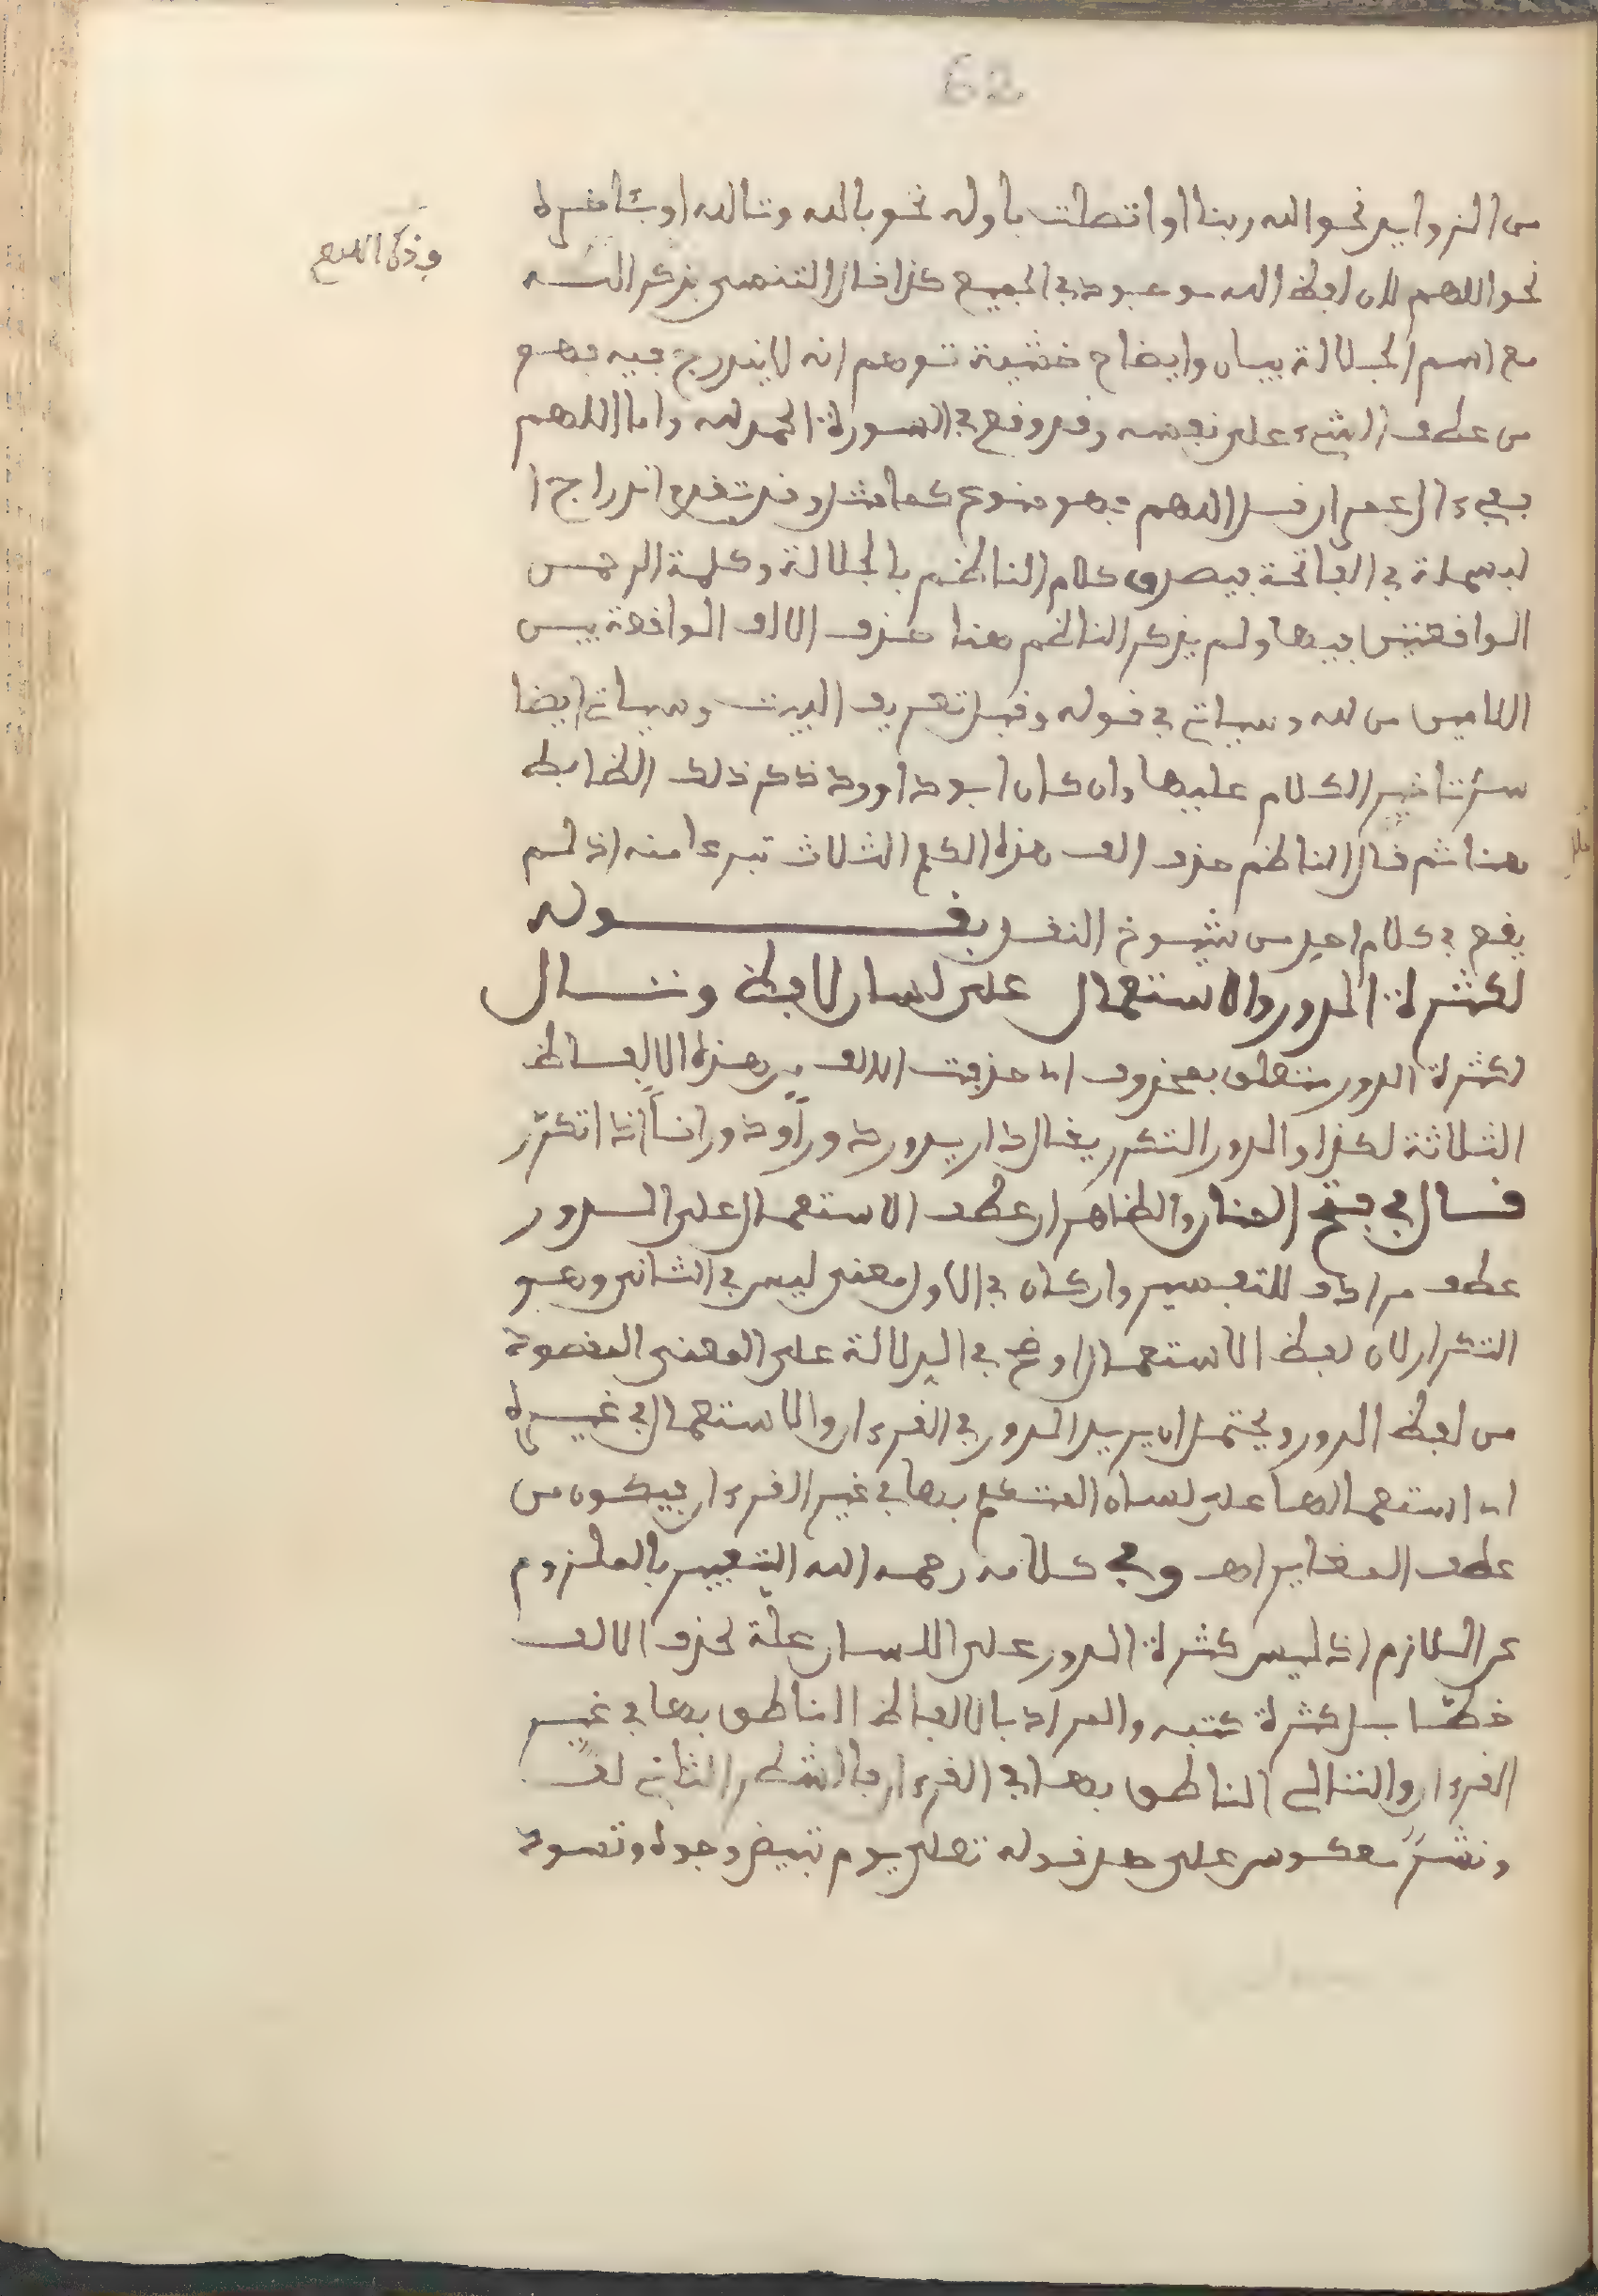 62
من الزوايد نحو الله ربنا او اتصلت باوله نحو بالله وتالله او بئاخره
نحو اللهم لان لفظ الله موجود في الجميع كذا قال التنسي بذكر الله
وذكر اللهم
مع اسم الجلالة بيان وايضاح خشية توهم انه لا يندرج فيه فهو
من عطف الشيء على نفسه وقد وقع في السورة الحمد لله واما اللهم
ففي ءال عمران قل اللهم فهو منوع كما مثل وقد تقدم اندراج ا
لبسملة في الفاتحة فيصدق كلام الناظم بالجلالة وكلمة الرحمن
الواقعتين فيها ولم يذكر الناظم هنا حذف الالف الواقعة بين
اللامين من لله وسياتي في قوله وقبل تعريف البيت وسياتي ايضا
سر تاخير الكلام عليها وان كان ابو داوود ذكر ذلك الضابط
هنا ثم قال الناظم حذف الف هذه الكلم الثلاث تبرعا منه اذ لم
يقع في كلام احد من شيوخ النقل بقوله
لكثرة الدور والاستعمال على لسان لافظ وتال
لكثرة الدور متعلق بمحذوف اي حذفت الالف من هذه الالفاظ
الثلاثة لكذا والدور التكرر يقال دار يدور دوراً ودوراناً اذا تكرّر
قال في فتح المنان والظاهر ان عطف الاستعمال على الدور
عطف مرادف للتفسير وان كان في الاول معنى ليس في الثاني وهو
التكرار لان لفظ الاستعمال اوضح في الدلالة على المعنى المقصود
من لفظ الدور ويحتمل ان يريد الدور في القرءان والاستعمال في غيره
اي استعمالها على لسان المتكلم بها في غير القرءان فيكون من
عطف المغاير اهـ وفي كلامه رحمه الله التعبير بالملزوم
عن اللازم اذ ليس كثرة الدور على اللسان علّة لحذف الالف
خطّا بل كثرة كتبه والمراد بالالفاظ الناطق بها في غير
القرءان والتالي الناطق بها في القرءان فالشطر الثاني لفّ
ونشرٌ معكوس على حد قوله تعلى يوم تبيض وجوه وتسود